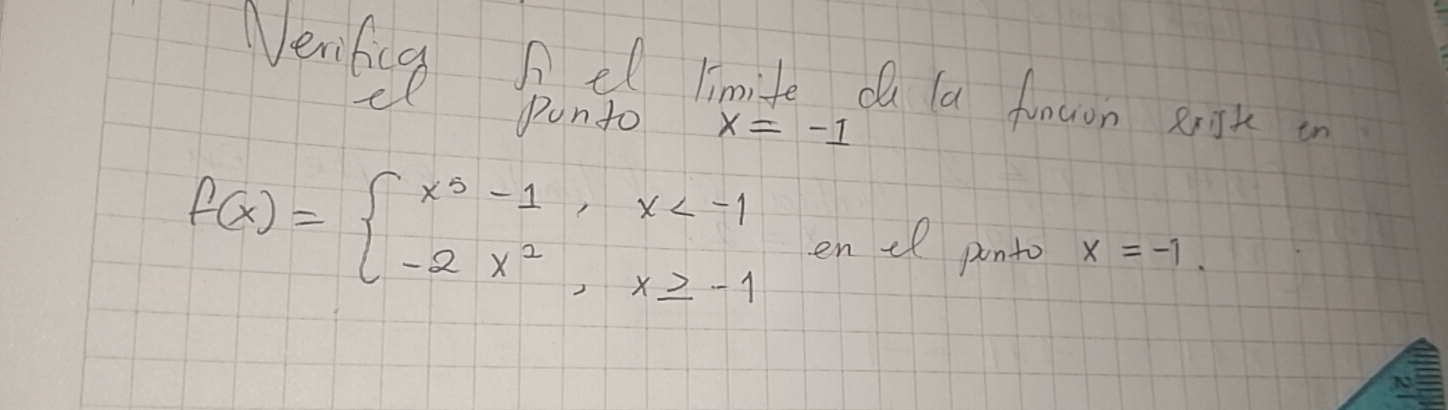 Verifica si el limite de la función existe en
el punto x = -1
f(x) = { x⁵ - 1 , x < -1
-2 x² , x ≥ -1 en el punto x = -1.
2